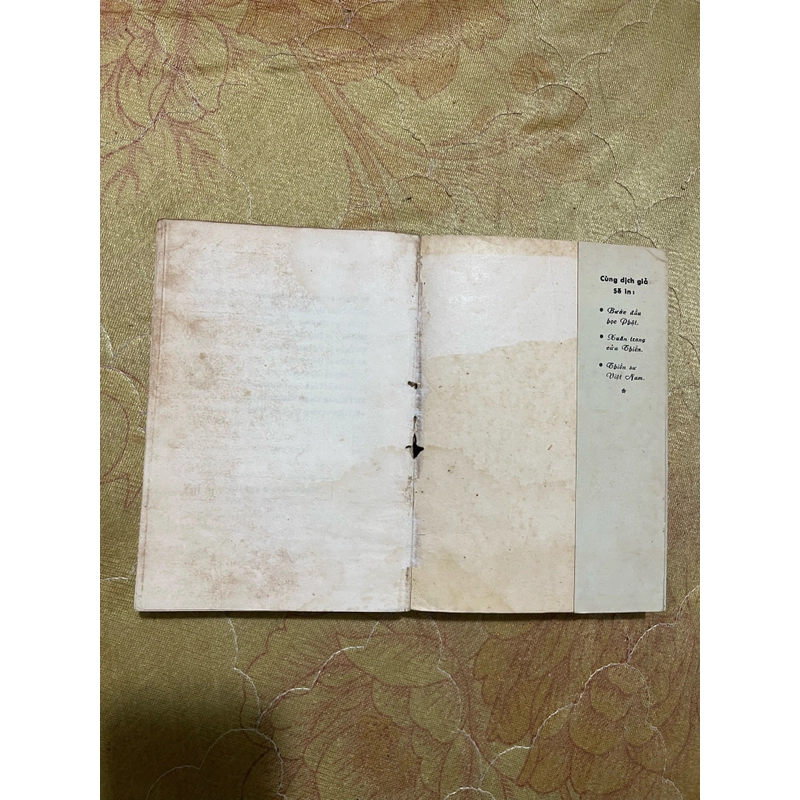 Cùng dịch giả
Sẽ in :
• Bước đầu
học Phật.
• Xuân trong
cửa Thiền.
• Thiền sư
Việt Nam.